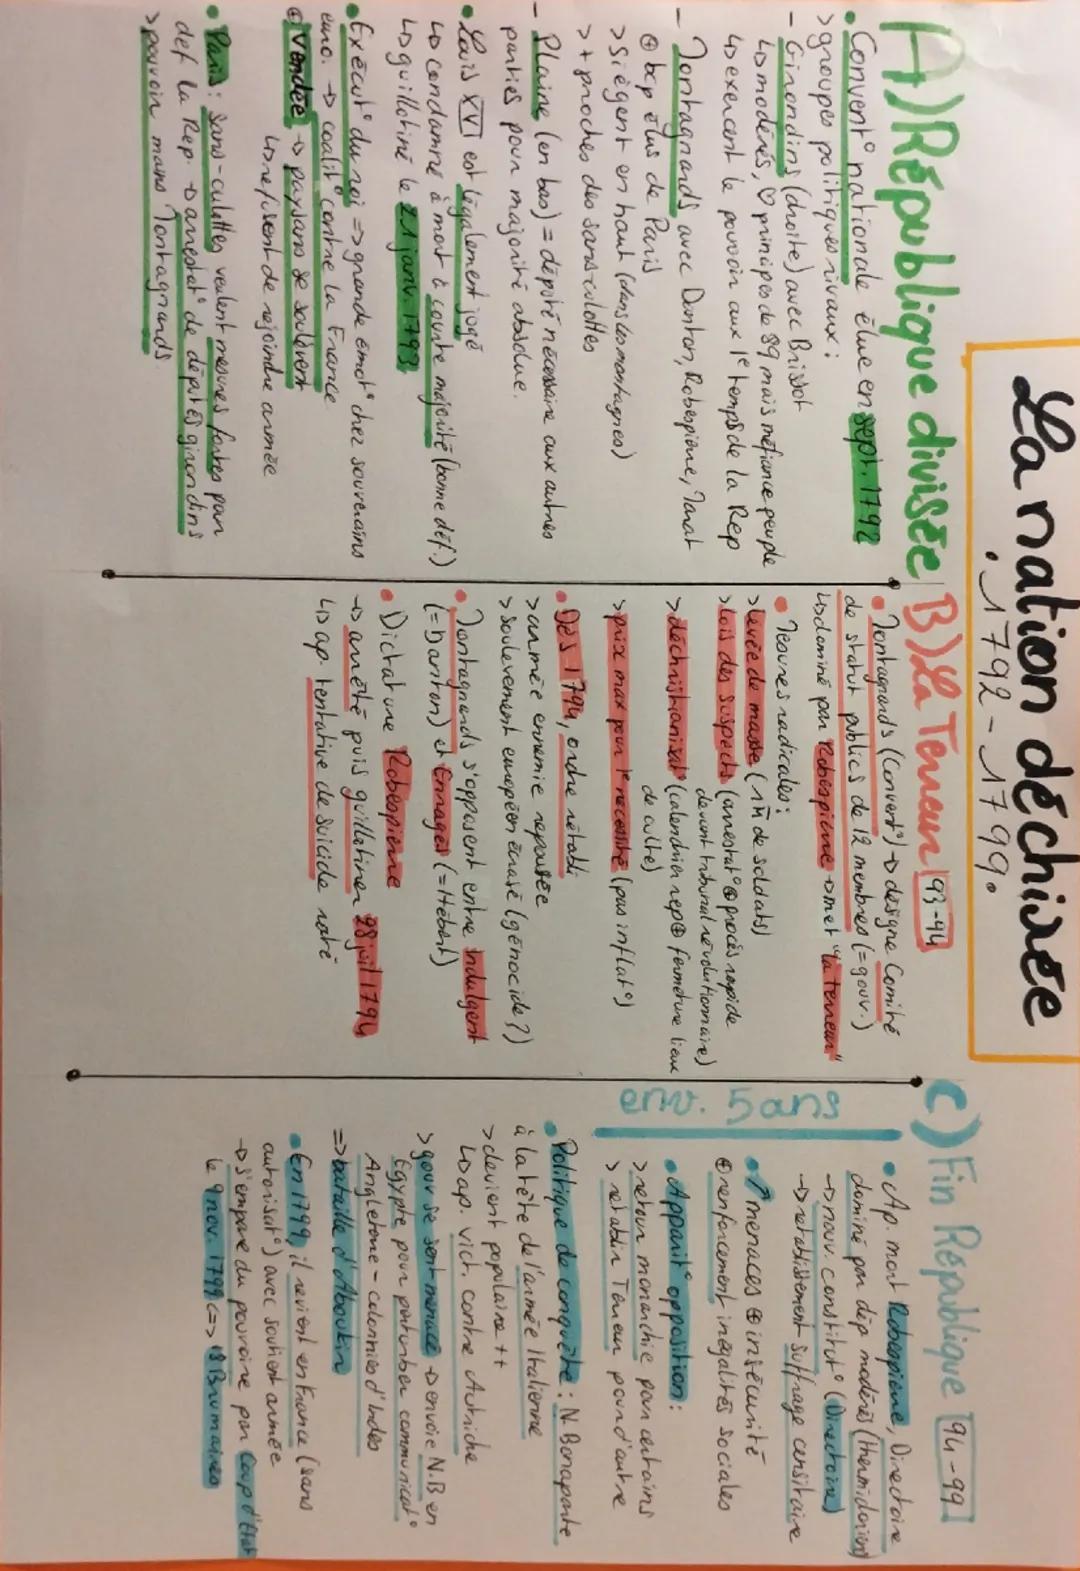 La nation déchirée
. 1792-1799.
A) République divisée
• Convent° nationale élue en sept. 1792
> groupes politiques rivaux :
- Girondins (droite) avec Brissot
↳ modérés, ♡ principes de 89 mais méfiance peuple
↳ exercent le pouvoir aux 1e temps de la Rep
- Montagnards avec Danton, Robespierre, Marat
⊕ bcp élus de Paris
> Siègent en haut (dans les montagnes)
> + proches des sans-culottes
- Plaine (en bas) = député nécessaire aux autres
parties pour majorité absolue.
• Louis XVI est légalement jugé
↳ condamné à mort à courte majorité (bonne déf.)
↳ guillotiné le 21 janv. 1793
• Exécut° du roi => grande émot° chez souverains
euro. → coalit° contre la France
⊕ Vendée → paysans se soulèvent
↳ refusent de rejoindre armée
• Paris : sans-culottes veulent mesures fortes par
def la Rep. → arrestat° de députés girondins
> pouvoir mains Montagnards.
B) La Terreur 93-94
• Montagnards (Convent°) → désigne Comité
de statut publics de 12 membres (= gouv.)
↳ dominé par Robespierre → met "la terreur"
• Mesures radicales :
> levée de masse (1M de soldats)
> lois des suspects (arrestat° ⊕ procès rapide
devant tribunal révolutionnaire)
> déchristianisat° (calendrier rep ⊕ fermeture lieux
de culte)
> prix max pour 1e nécessité (pas inflat°)
• Dès 1794, ordre rétabli
> armée ennemie repousée
> soulevement européen écrasé (génocide ?)
• Montagnards s'opposent entre Indulgent
(= Danton) et Enragés (= Hébert)
• Dictature Robespierre
→ arrêté puis guillotiner 28 juil 1794
↳ ap. tentative de suicide raté
C) Fin République 94-99
env. 5 ans
• Ap. mort Robespierre, Directoire
dominé par dép modérés (thermidorien)
→ nouv. constitut° (Directoire)
→ rétablissement suffrage censitaire
• ↗ menaces ⊕ insécurité
⊕ renforcement inégalités sociales
• Apparit° opposition :
> retour monarchie par certains
> rétablir Terreur pour d'autre
• Politique de conquête : N. Bonaparte
à la tête de l'armée Italienne
> devient populaire ++
↳ ap. vict. contre Autriche
> gouv se sent menacé → envoie N.B en
Egypte pour perturber communicat°
Angleterre - colonies d'Indes
=> bataille d'Aboukir
• En 1799, il revient en France (sans
autorisat°) avec soutient armée
→ s'empare du pouvoire par Coup d'Etat
le 9 nov. 1799 <=> 18 Brumaires